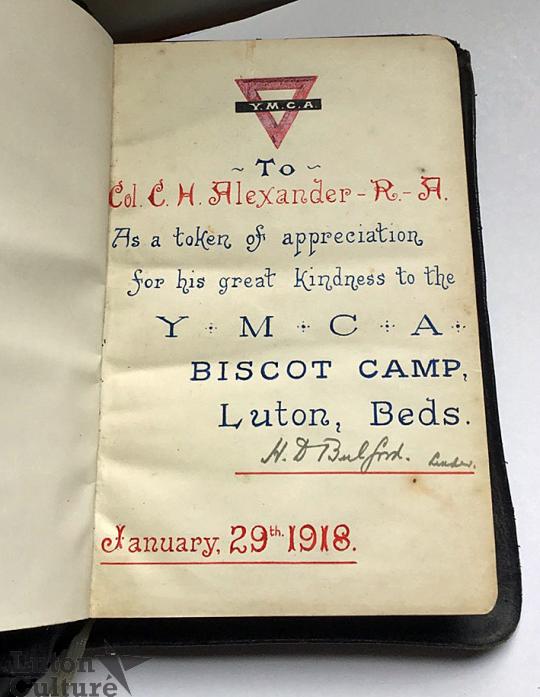 Y.M.C.A
~ To ~
Col. C. H. Alexander - R. - A.
As a token of appreciation
for his great kindness to the
Y · M · C · A ·
BISCOT CAMP,
Luton, Beds.
H. D Bulford. Leader.
January, 29th. 1918.
Luton
Culture